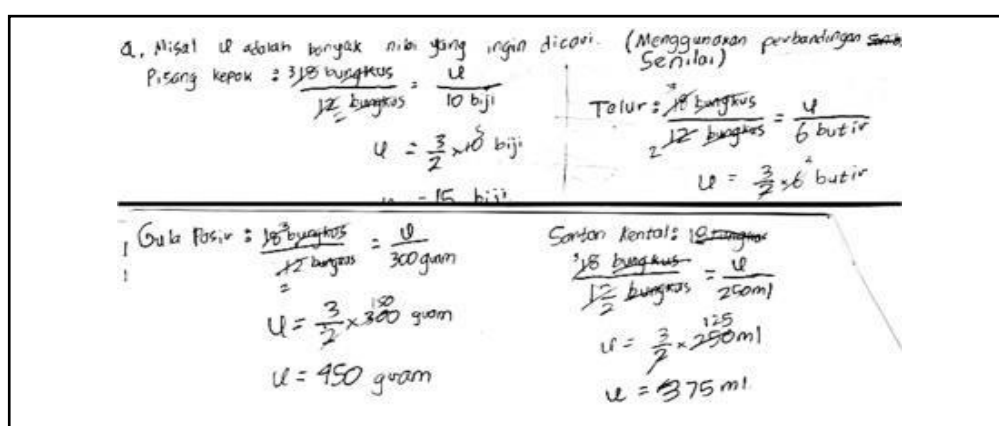 a. Misal u adalah banyak nilai yang ingin dicari. (Menggunakan perbandingan
Senilai)
Pisang kepok : 18 bungkus / 12 bungkus = u / 10 biji
u = 3/2 × 10 biji
u = 15 biji
Telur : 18 bungkus / 12 bungkus = u / 6 butir
u = 3/2 × 6 butir
Gula Pasir : 18 bungkus / 12 bungkus = u / 300 gram
u = 3/2 × 300 gram
u = 450 gram
Santan Kental : 18 bungkus
18 bungkus / 12 bungkus = u / 250ml
u = 3/2 × 250ml
u = 375 ml